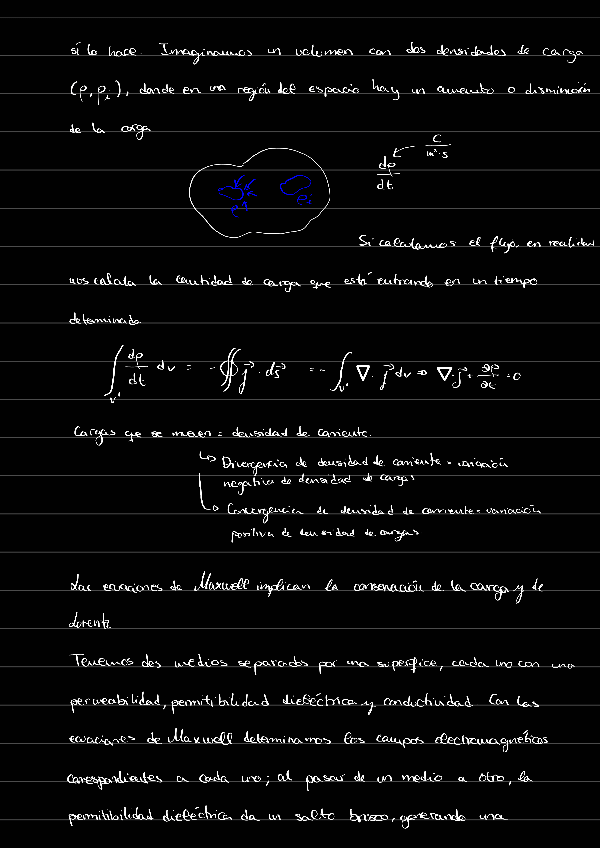 sí lo hace. Imaginamos un volumen con dos densidades de carga
(ρ, ρi), donde en una región del espacio hay un aumento o disminución
de la carga
dρ/dt
C/m³·s
Si calculamos el flujo, en realidad
nos calcula la cantidad de carga que está entrando en un tiempo
determinado.
∫v' dρ/dt dv = -∯ j⃗ · ds⃗ = -∫v' ∇ · j⃗ dv ⇒ ∇·j⃗ + ∂ρ/∂t = 0
Cargas que se mueven = densidad de corriente.
↳ Divergencia de densidad de corriente = variación
negativa de densidad de cargas
↳ Convergencia de densidad de corriente = variación
positiva de densidad de cargas
Las ecuaciones de Maxwell implican la conservación de la carga y de
Tenemos dos medios separados por una superficie, cada uno con una
permeabilidad, permitibilidad dieléctrica y conductividad. Con las
ecuaciones de Maxwell determinamos los campos electromagnéticos
correspondientes a cada uno; al pasar de un medio a otro, la
permitibilidad dieléctrica da un salto brusco, generando una